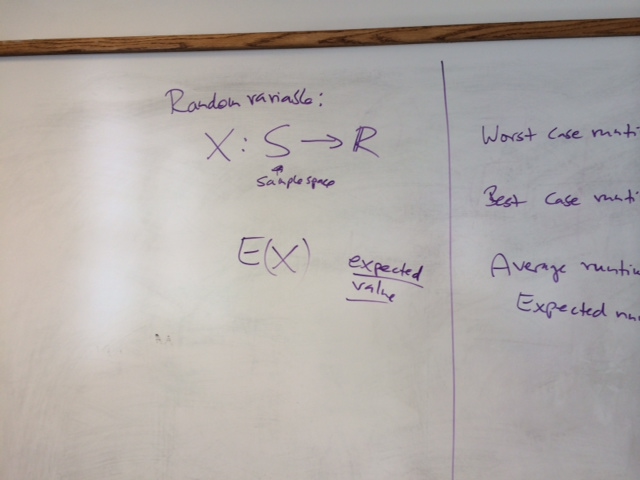 Random variable:
X: S → R
sample space
E(X) expected
value
Worst case runti
Best case runti
Average runtim
Expected run